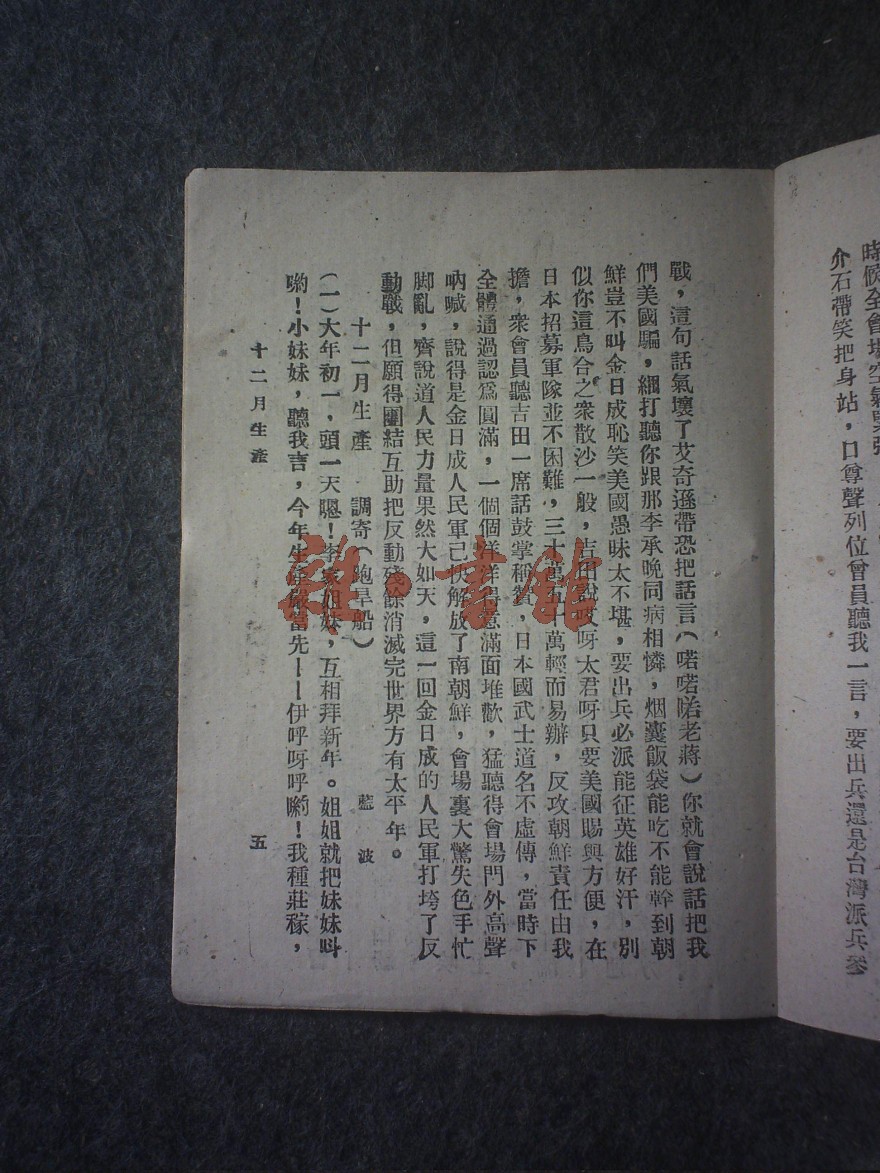 時候全會場空氣緊張
介石帶笑把身站，口尊聲列位會員聽我一言，要出兵還是台灣派兵參
戰，這句話氣壞了艾奇遜帶恐把話言（喏喏喏老蔣）你就會說話把我
們美國騙，細打聽你跟那李承晚同病相憐，烟囊飯袋能吃不能幹到朝
鮮豈不叫金日成恥笑美國愚昧太不堪，要出兵必派能征英雄好汗，別
似你這鳥合之衆散沙一般，吉田說哎呀太君呀只要美國賜與方便，在
日本招募軍隊並不困難，三十萬五十萬輕而易辦，反攻朝鮮責任由我
擔，衆會員聽吉田一席話鼓掌稱贊，日本國武士道名不虛傳，當時下
全體通過認爲圓滿，一個個洋洋得意滿面堆歡，猛聽得會場門外高聲
吶喊，說得是金日成人民軍已快解放了南朝鮮，會場裏大驚失色手忙
脚亂，齊說道人民力量果然大如天，這一回金日成的人民軍打垮了反
動戰，但願得團結互助把反動殘餘消滅完世界方有太平年。
十二月生產　調寄（跑旱船）　藍波
（一）大年初一，頭一天嗯！李家姐妹，互相拜新年。姐姐就把妹妹呌
喲！小妹妹，聽我言，今年生產嚴當先——伊呼呀呼喲！我種莊稼，
十二月生產　五
雜·書館